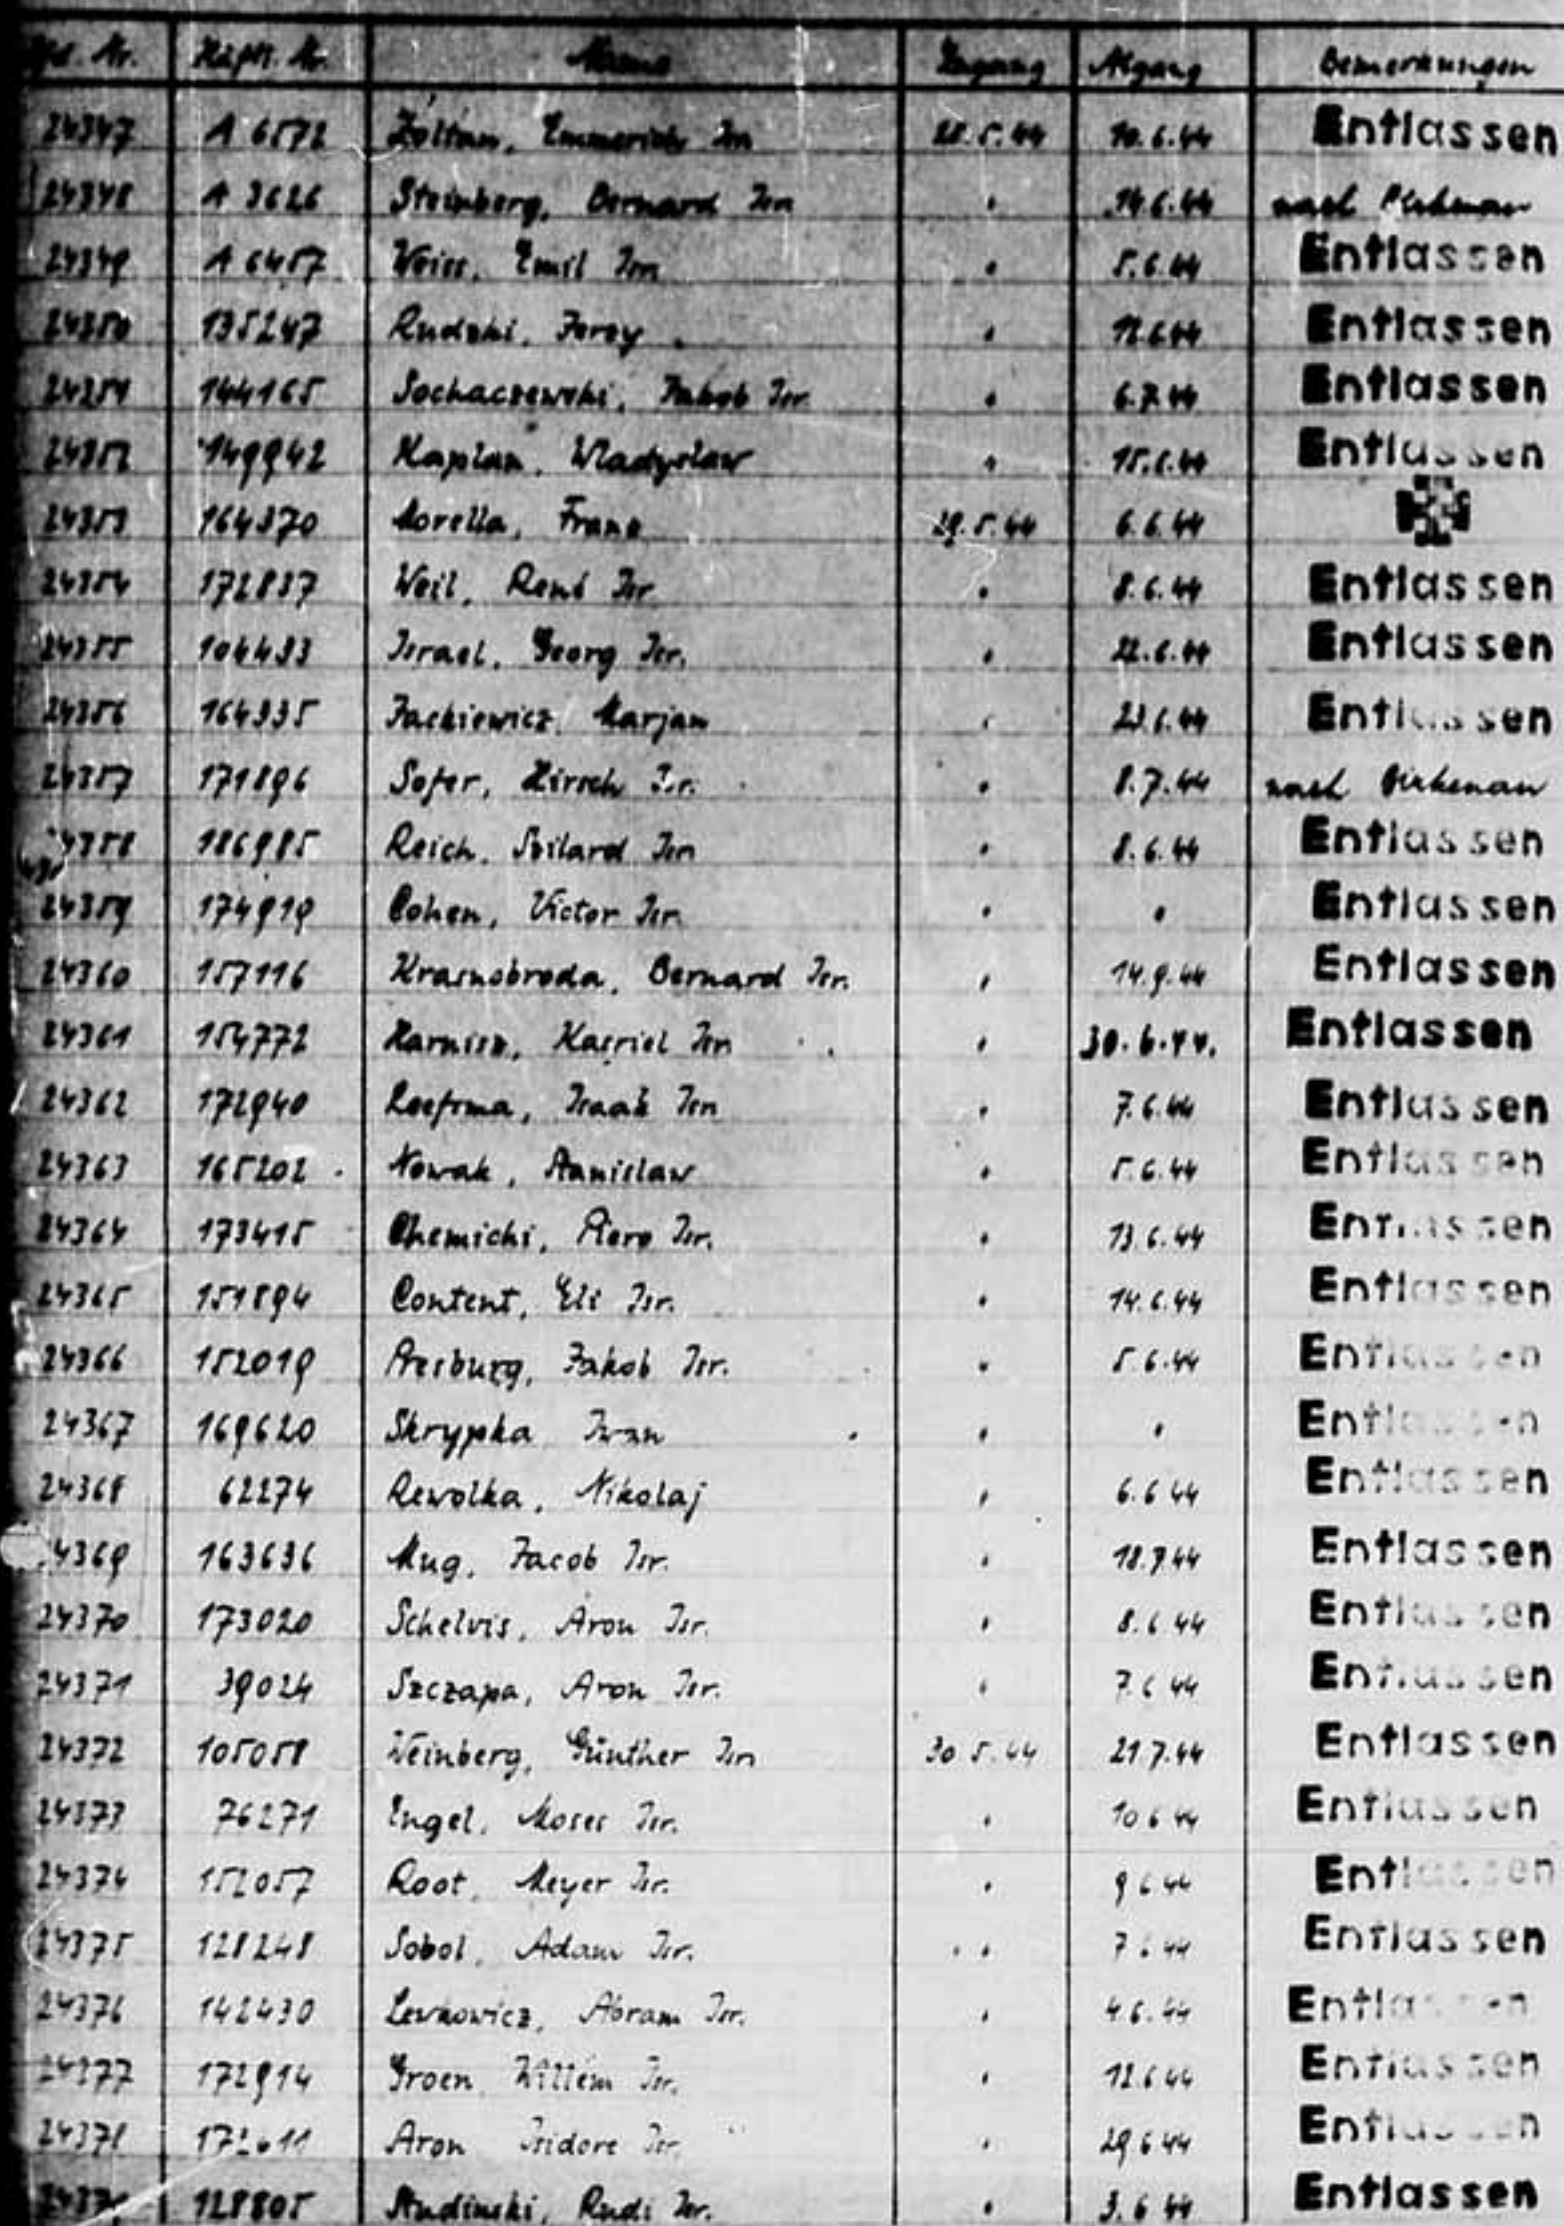 Lfd. Nr. Häftl. Nr. Name Zugang Abgang Bemerkungen
24347 A 6572 Zoltan, Emmerich Isr. 28.5.44 10.6.44 Entlassen
24348 A 3626 Steinberg, Bernard Isr. " 14.6.44 nach Birkenau
24349 A 6457 Weiss, Emil Isr. " 5.6.44 Entlassen
24350 135247 Rudzki, Jerzy " 12.6.44 Entlassen
24351 144165 Sochaczewski, Jakob Isr. " 6.7.44 Entlassen
24352 149942 Kaplan, Wladyslaw " 15.6.44 Entlassen
24353 164370 Morella, Franz 29.5.44 6.6.44
24354 172837 Weil, René Isr. " 8.6.44 Entlassen
24355 104433 Israel, Georg Isr. " 22.6.44 Entlassen
24356 164335 Jackiewicz, Marjan " 23.6.44 Entlassen
24357 171896 Sofer, Hirsch Isr. " 8.7.44 nach Birkenau
24358 186985 Reich, Szilard Isr. " 8.6.44 Entlassen
24359 174919 Cohen, Victor Isr. " " Entlassen
24360 157116 Krasnobroda, Bernard Isr. " 14.9.44 Entlassen
24361 154772 Harnisz, Kasriel Isr. " 30.6.44. Entlassen
24362 172940 Leefsma, Isaak Isr. " 7.6.44 Entlassen
24363 165202 Nowak, Stanislaw " 5.6.44 Entlassen
24364 173415 Chemichi, Piero Isr. " 13.6.44 Entlassen
24365 151894 Content, Eli Isr. " 14.6.44 Entlassen
24366 152019 Presburg, Jakob Isr. " 5.6.44 Entlassen
24367 169620 Skrypka Iwan " " Entlassen
24368 62274 Rewolka, Nikolaj " 6.6.44 Entlassen
24369 163636 Mug, Jacob Isr. " 18.7.44 Entlassen
24370 173020 Schelvis, Aron Isr. " 8.6.44 Entlassen
24371 39024 Szczapa, Aron Isr. " 7.6.44 Entlassen
24372 105058 Weinberg, Günther Isr. 30.5.44 21.7.44 Entlassen
24373 76271 Engel, Moses Isr. " 10.6.44 Entlassen
24374 152057 Root, Meyer Isr. " 9.6.44 Entlassen
24375 128248 Sobol, Adam Isr. " 7.6.44 Entlassen
24376 142430 Lewkowicz, Abram Isr. " 4.6.44 Entlassen
24377 172914 Groen Willem Isr. " 12.6.44 Entlassen
24378 172611 Aron Isidore Isr. " 29.6.44 Entlassen
24379 128805 Studinski, Rudi Isr. " 3.6.44 Entlassen